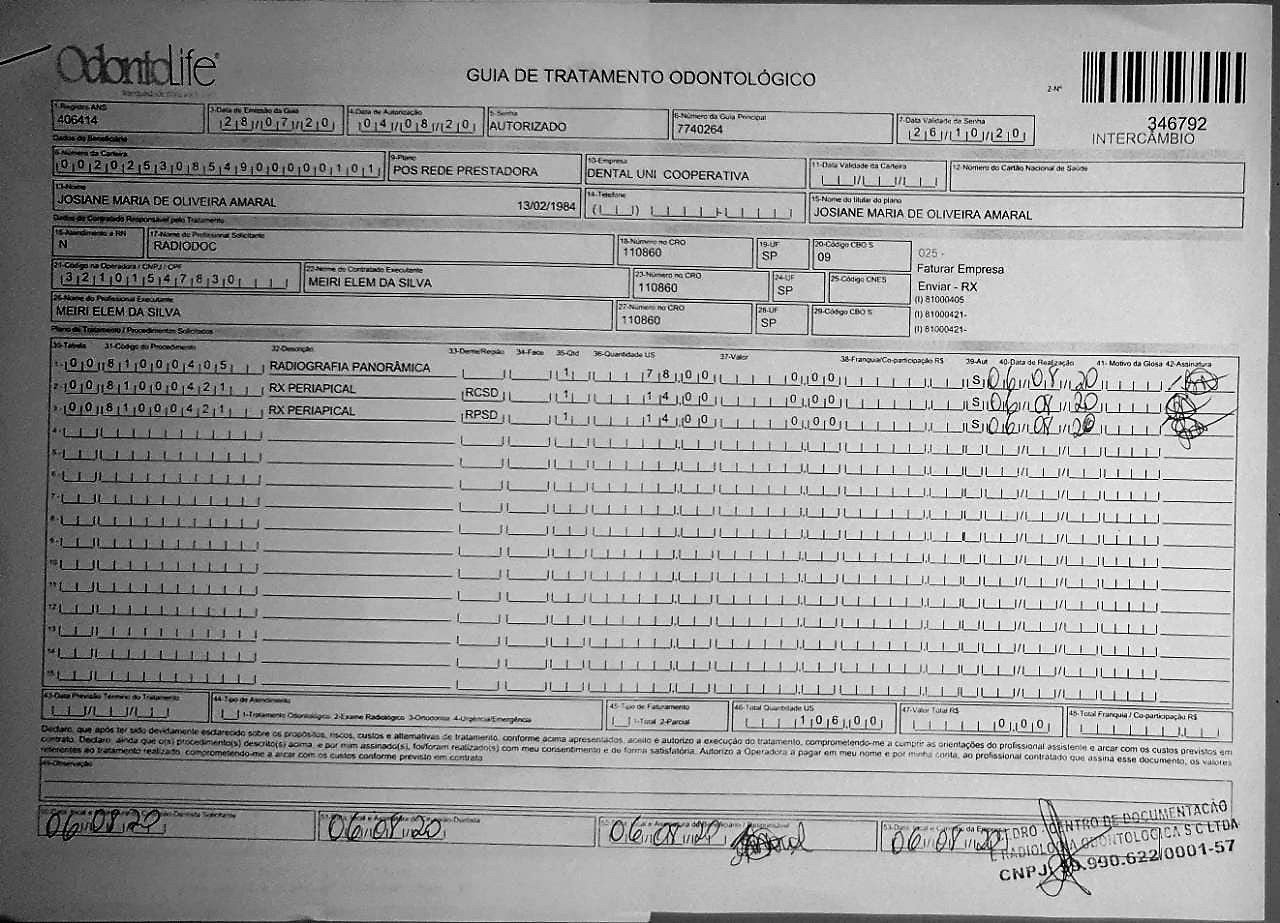 OdontoLife®
GUIA DE TRATAMENTO ODONTOLÓGICO
2-Nº
346792
INTERCÂMBIO
1-Registro ANS 3-Data de Emissão da Guia 4-Data de Autorização 5-Senha 6-Número da Guia Principal 7-Data Validade da Senha
406414 28/07/20 04/08/20 AUTORIZADO 7740264 26/10/20
Dados do Beneficiário
8-Número da Carteira 9-Plano 10-Empresa 11-Data Validade da Carteira 12-Número do Cartão Nacional de Saúde
00202530854900000101 POS REDE PRESTADORA DENTAL UNI COOPERATIVA
13-Nome 14-Telefone 15-Nome do titular do plano
JOSIANE MARIA DE OLIVEIRA AMARAL 13/02/1984 JOSIANE MARIA DE OLIVEIRA AMARAL
Dados do Contratado Responsável pelo Tratamento
16-Atendimento a RN 17-Nome do Profissional Solicitante 18-Número no CRO 19-UF 20-Código CBO S
N RADIODOC 110860 SP 09
025 -
Faturar Empresa
Enviar - RX
(I) 81000405
(I) 81000421-
(I) 81000421-
21-Código na Operadora / CNPJ / CPF 22-Nome do Contratado Executante 23-Número no CRO 24-UF 25-Código CNES
32101547830 MEIRI ELEM DA SILVA 110860 SP
26-Nome do Profissional Executante 27-Número no CRO 28-UF 29-Código CBO S
MEIRI ELEM DA SILVA 110860 SP
Plano de Tratamento / Procedimentos Solicitados
30-Tabela 31-Código do Procedimento 32-Descrição 33-Dente/Região 34-Face 35-Qtd 36-Quantidade US 37-Valor 38-Franquia/Co-participação R$ 39-Aut 40-Data de Realização 41- Motivo da Glosa 42-Assinatura
1- 00 81000405 RADIOGRAFIA PANORÂMICA 1 78,00 0,00 S 06/08/20
2- 00 81000421 RX PERIAPICAL RCSD 1 14,00 0,00 S 06/08/20
3- 00 81000421 RX PERIAPICAL RPSD 1 14,00 0,00 S 06/08/20
4-
5-
6-
7-
8-
9-
10
11
12
13
14
15
43-Data Previsão Término do Tratamento 44-Tipo de Atendimento 45-Tipo de Faturamento 46-Total Quantidade US 47-Valor Total R$ 48-Total Franquia / Co-participação R$
1-Tratamento Odontológico 2-Exame Radiológico 3-Ortodontia 4-Urgência/Emergência 1-Total 2-Parcial 106,00 0,00
Declaro, que após ter sido devidamente esclarecido sobre os propósitos, riscos, custos e alternativas de tratamento, conforme acima apresentados, aceito e autorizo a execução do tratamento, comprometendo-me a cumprir as orientações do profissional assistente e arcar com os custos previstos em
contrato. Declaro, ainda que o(s) procedimento(s) descrito(s) acima, e por mim assinado(s), foi/foram realizado(s) com meu consentimento e de forma satisfatória. Autorizo a Operadora a pagar em meu nome e por minha conta, ao profissional contratado que assina esse documento, os valores
referentes ao tratamento realizado, comprometendo-me a arcar com os custos conforme previsto em contrato
49-Observação
06/08/20 06/08/20 06/08/20 06/08/20
CENTRO DE DOCUMENTAÇÃO
E RADIOLOGIA ODONTOLÓGICA S C LTDA
CNPJ .990.622/0001-57